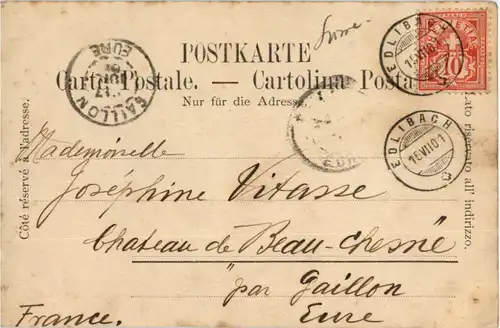 POSTKARTE
Carte Postale. — Cartolina Posta
Nur für die Adresse
Côté réservé à l'adresse.
lato riservato all' indirizzo.
EDLIBACH
10
EDLIBACH
16 VII 01
GAILLON
EURE
17
Mademoiselle
Joséphine Vitasse
Chateau de Beau-Chesne
par Gaillon
Eure
France.